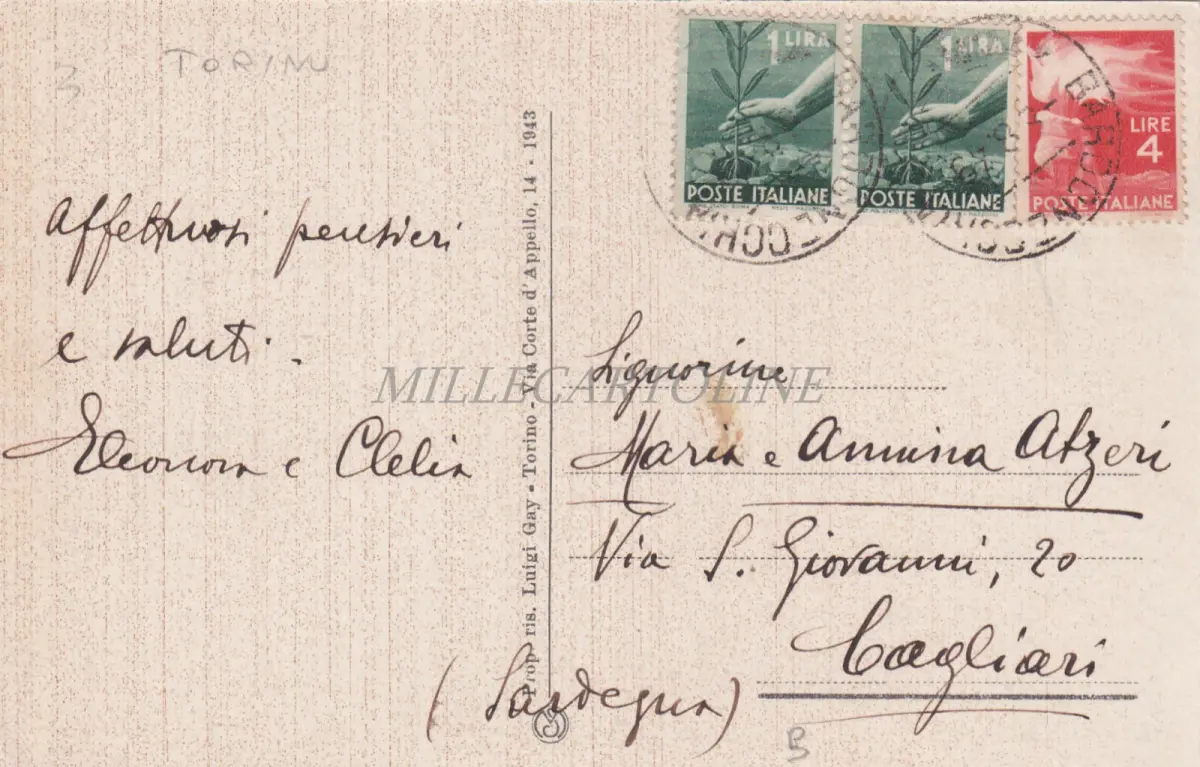 TORINO
3
Affettuosi pensieri
e saluti.
Eleonora e Clelia
Propr. ris. Luigi Gay - Torino - Via Corte d'Appello, 14 - 1943
1 LIRA
POSTE ITALIANE
1 LIRA
POSTE ITALIANE
LIRE
4
POSTE ITALIANE
BARDONECCHIA
BARDONECCHIA
MILLECARTOLINE
Signorine
Maria e Annina Atzeri
Via S. Giovanni, 20
Cagliari
(Sardegna)
B